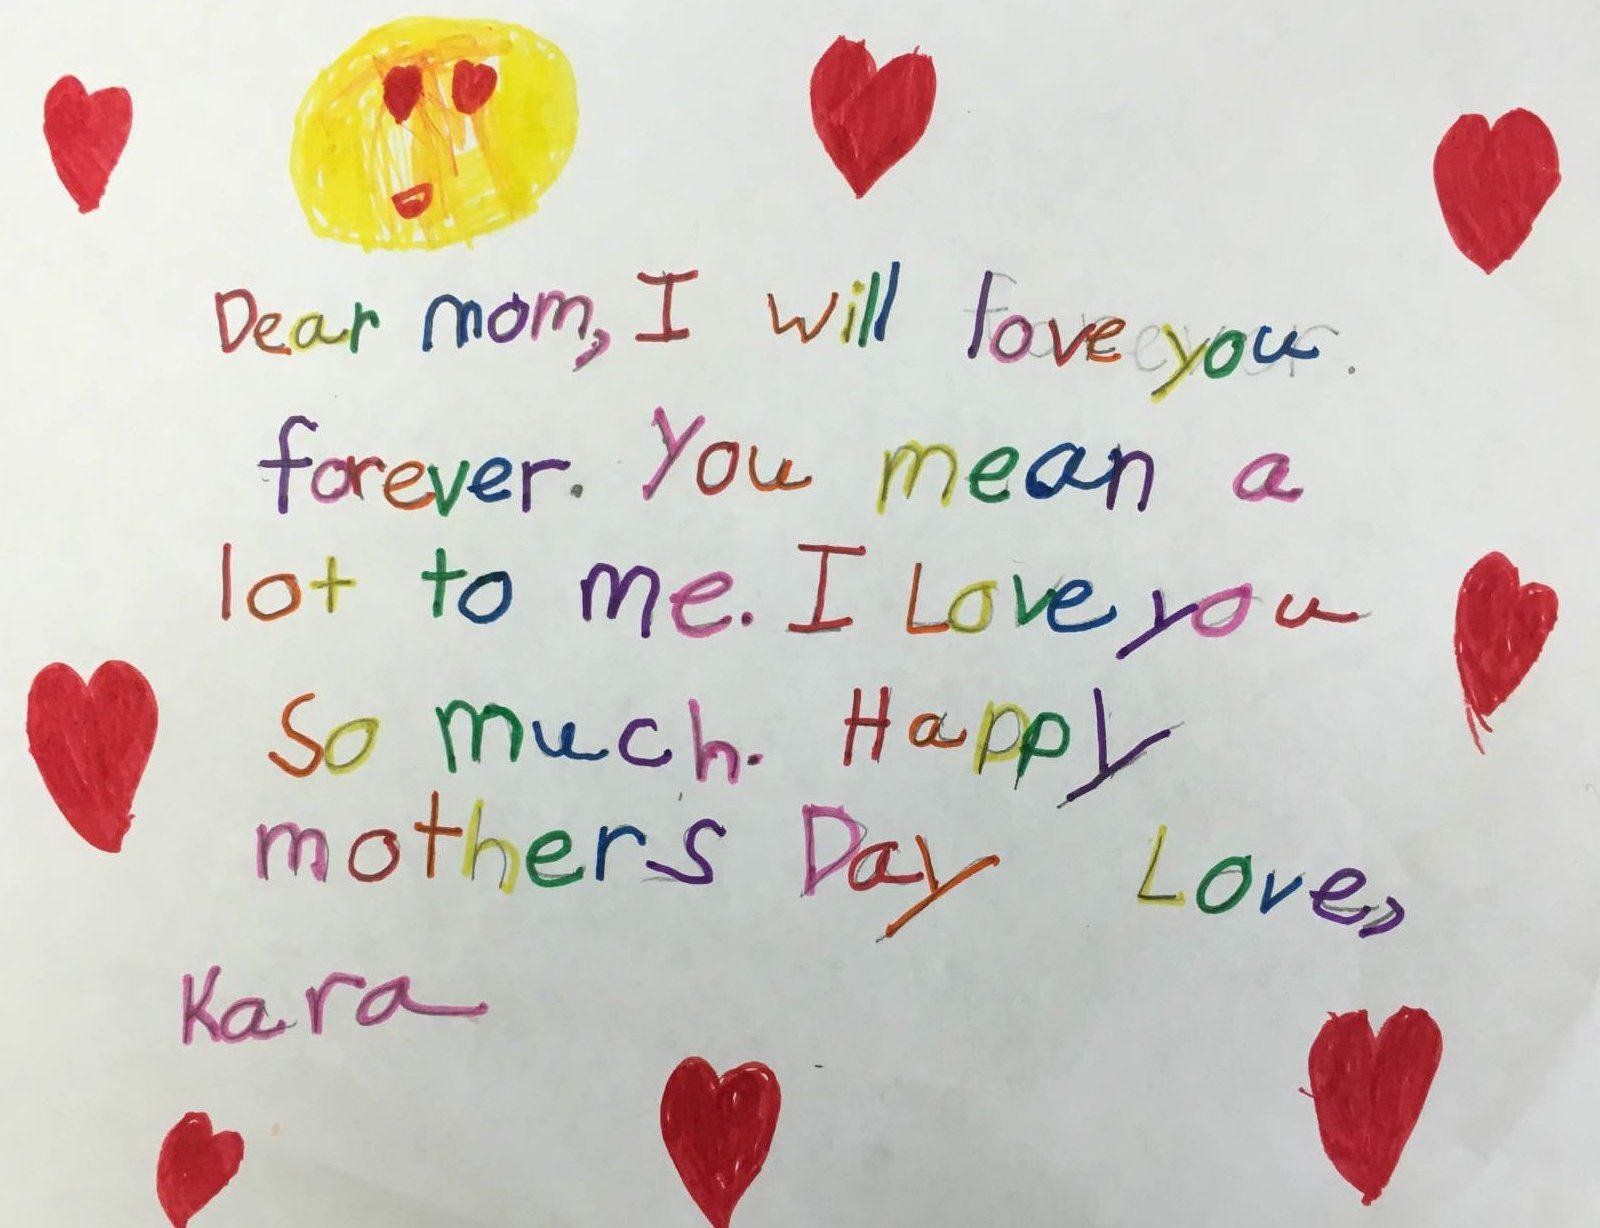 Dear mom, I will love you.
forever. You mean a
lot to me. I Love you
So much. Happy
mothers Day Love,
Kara